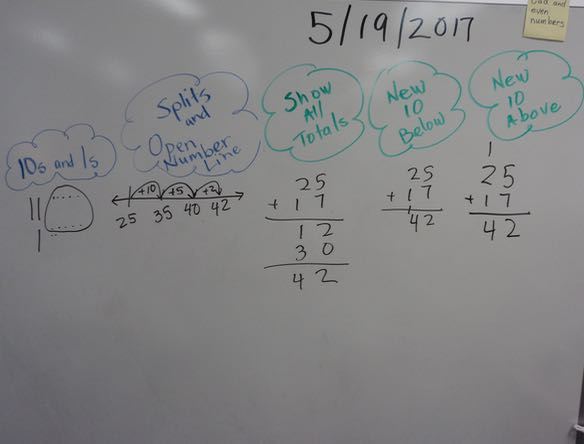 5/19/2017
Odd and
even
numbers
10s and 1s
Splits
and
Open
Number
Line
+10 +5 +2
25 35 40 42
Show
All
Totals
25
+ 17
12
30
42
New
10
Below
25
+ 17
1
42
New
10
Above
1
25
+ 17
42